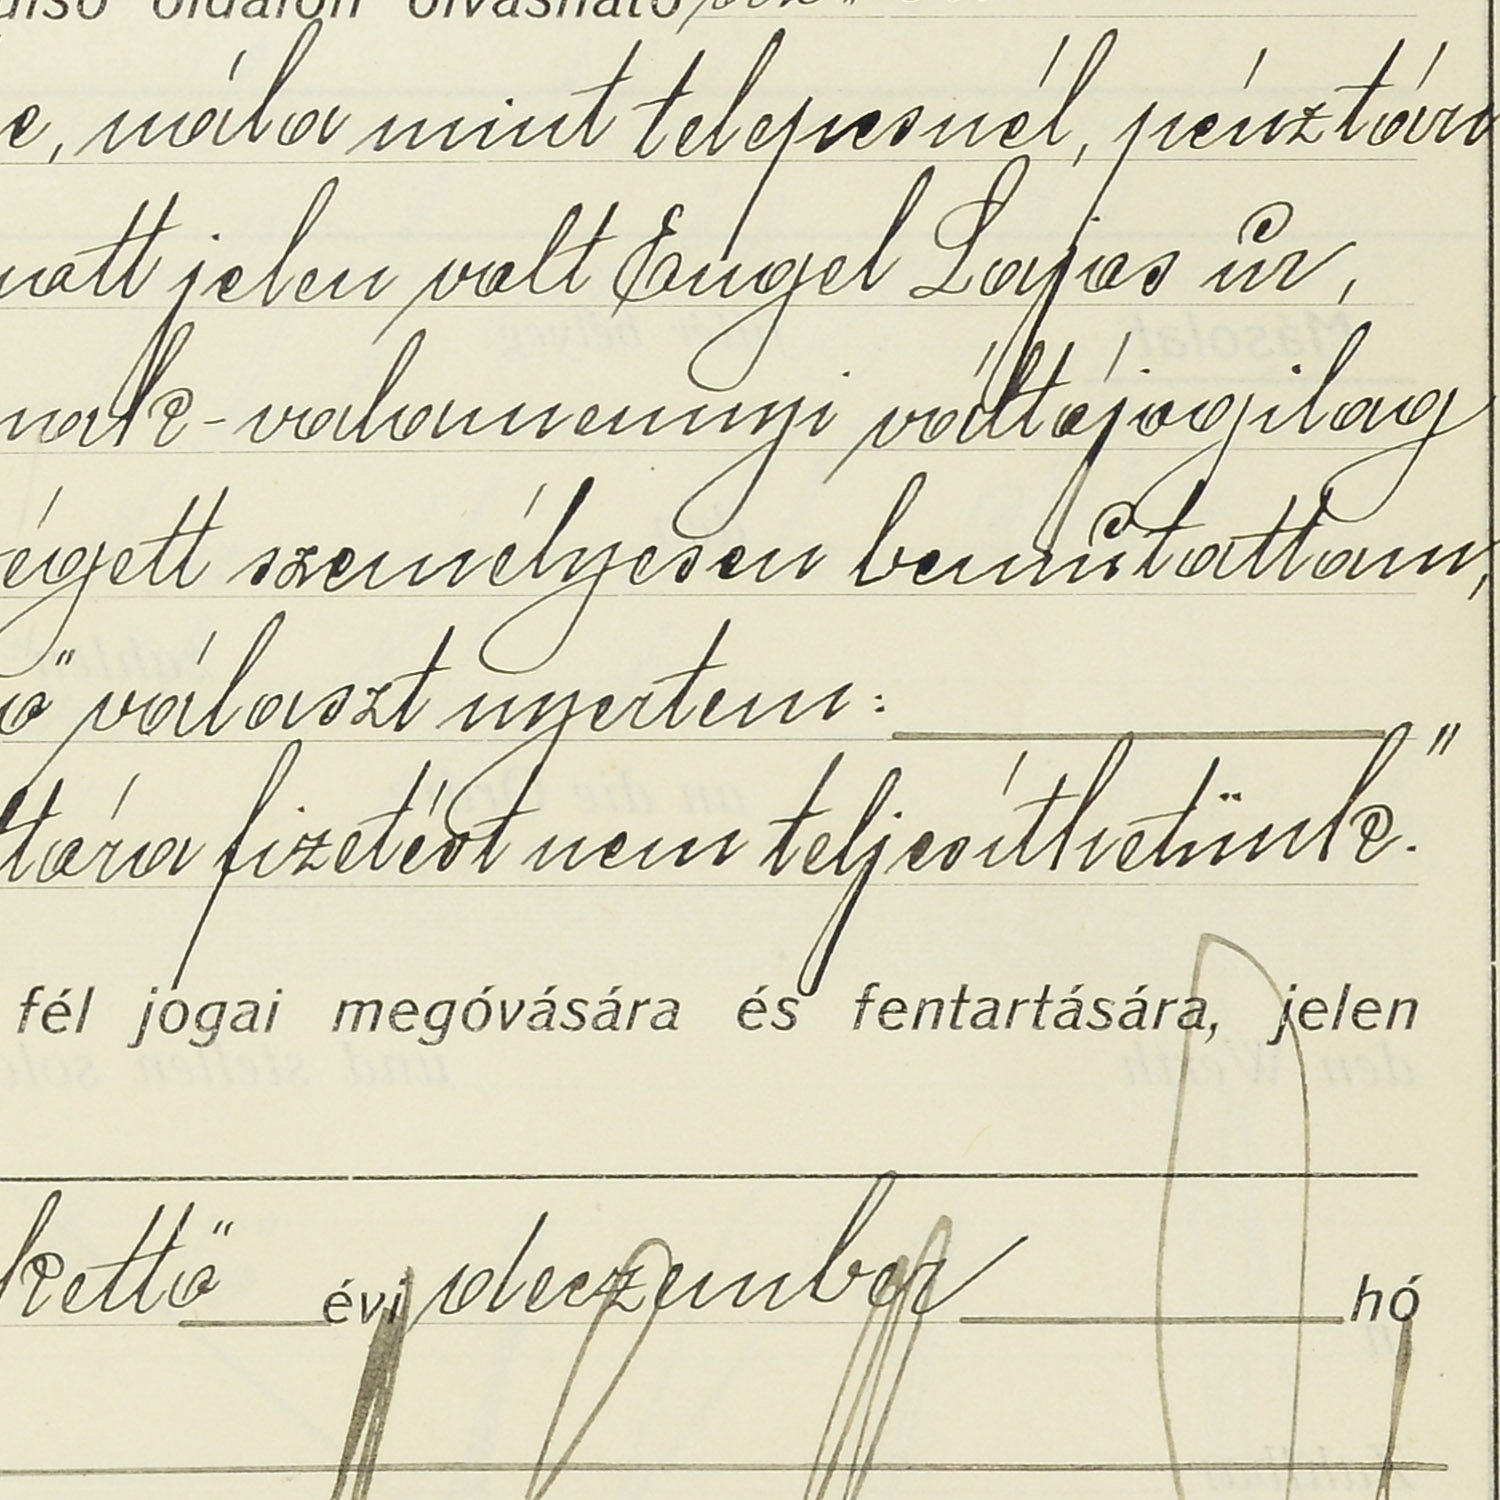 oldalon olvasható
e, nála mint telepesnél, pénztára
jelen volt Engel Lajos úr,
nak - valamennyi váltójogilag
végett személyesen bemútattam,
ő választ nyertem:
"
tára fizetést nem teljesíthetünk.
fél jogai megóvására és fentartására, jelen
kettő évi deczember hó